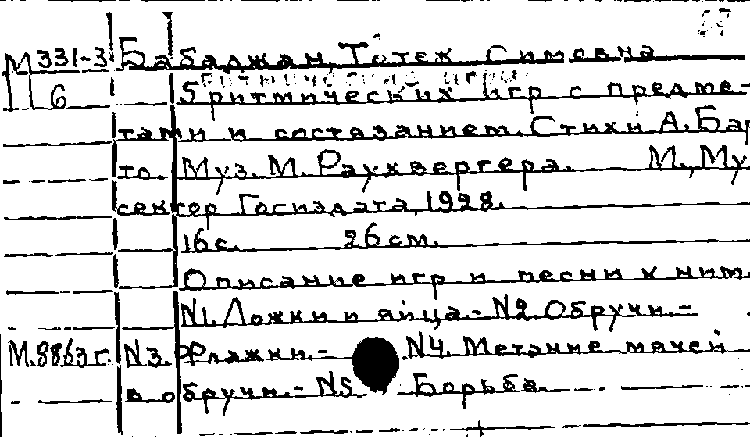 М 331-3 Бабаджан, Тотеж Симовна
6 5 ритмических игр с предме-
тами и состязанием. Стихи А. Бар
то. Муз. М. Раухвергера. М., Му
сектор Госиздата, 1928.
16 с. 26 см.
Описание игр и песни к ним.
N1. Ложки и яйца. - N2. Обручи. -
М.8863 г. N3. Флажки. - N4. Метание мячей
в обручи. - N5. Борьба.